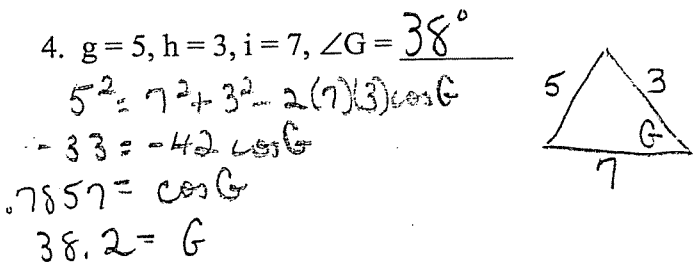 4. g = 5, h = 3, i = 7, ∠G = 38°
5² = 7² + 3² - 2(7)(3)cosG
-33 = -42 cosG
.7857 = cosG
38.2 = G
5
3
G
7